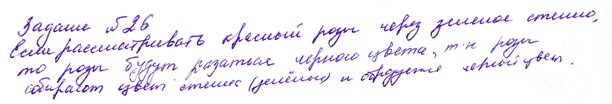 Задание №26
Если рассматривать красный розы через зеленое стекло,
то розы будут казаться черного цвета, т-к розы
собирают цвет стекла (зелёный) и образуется черный цвет.